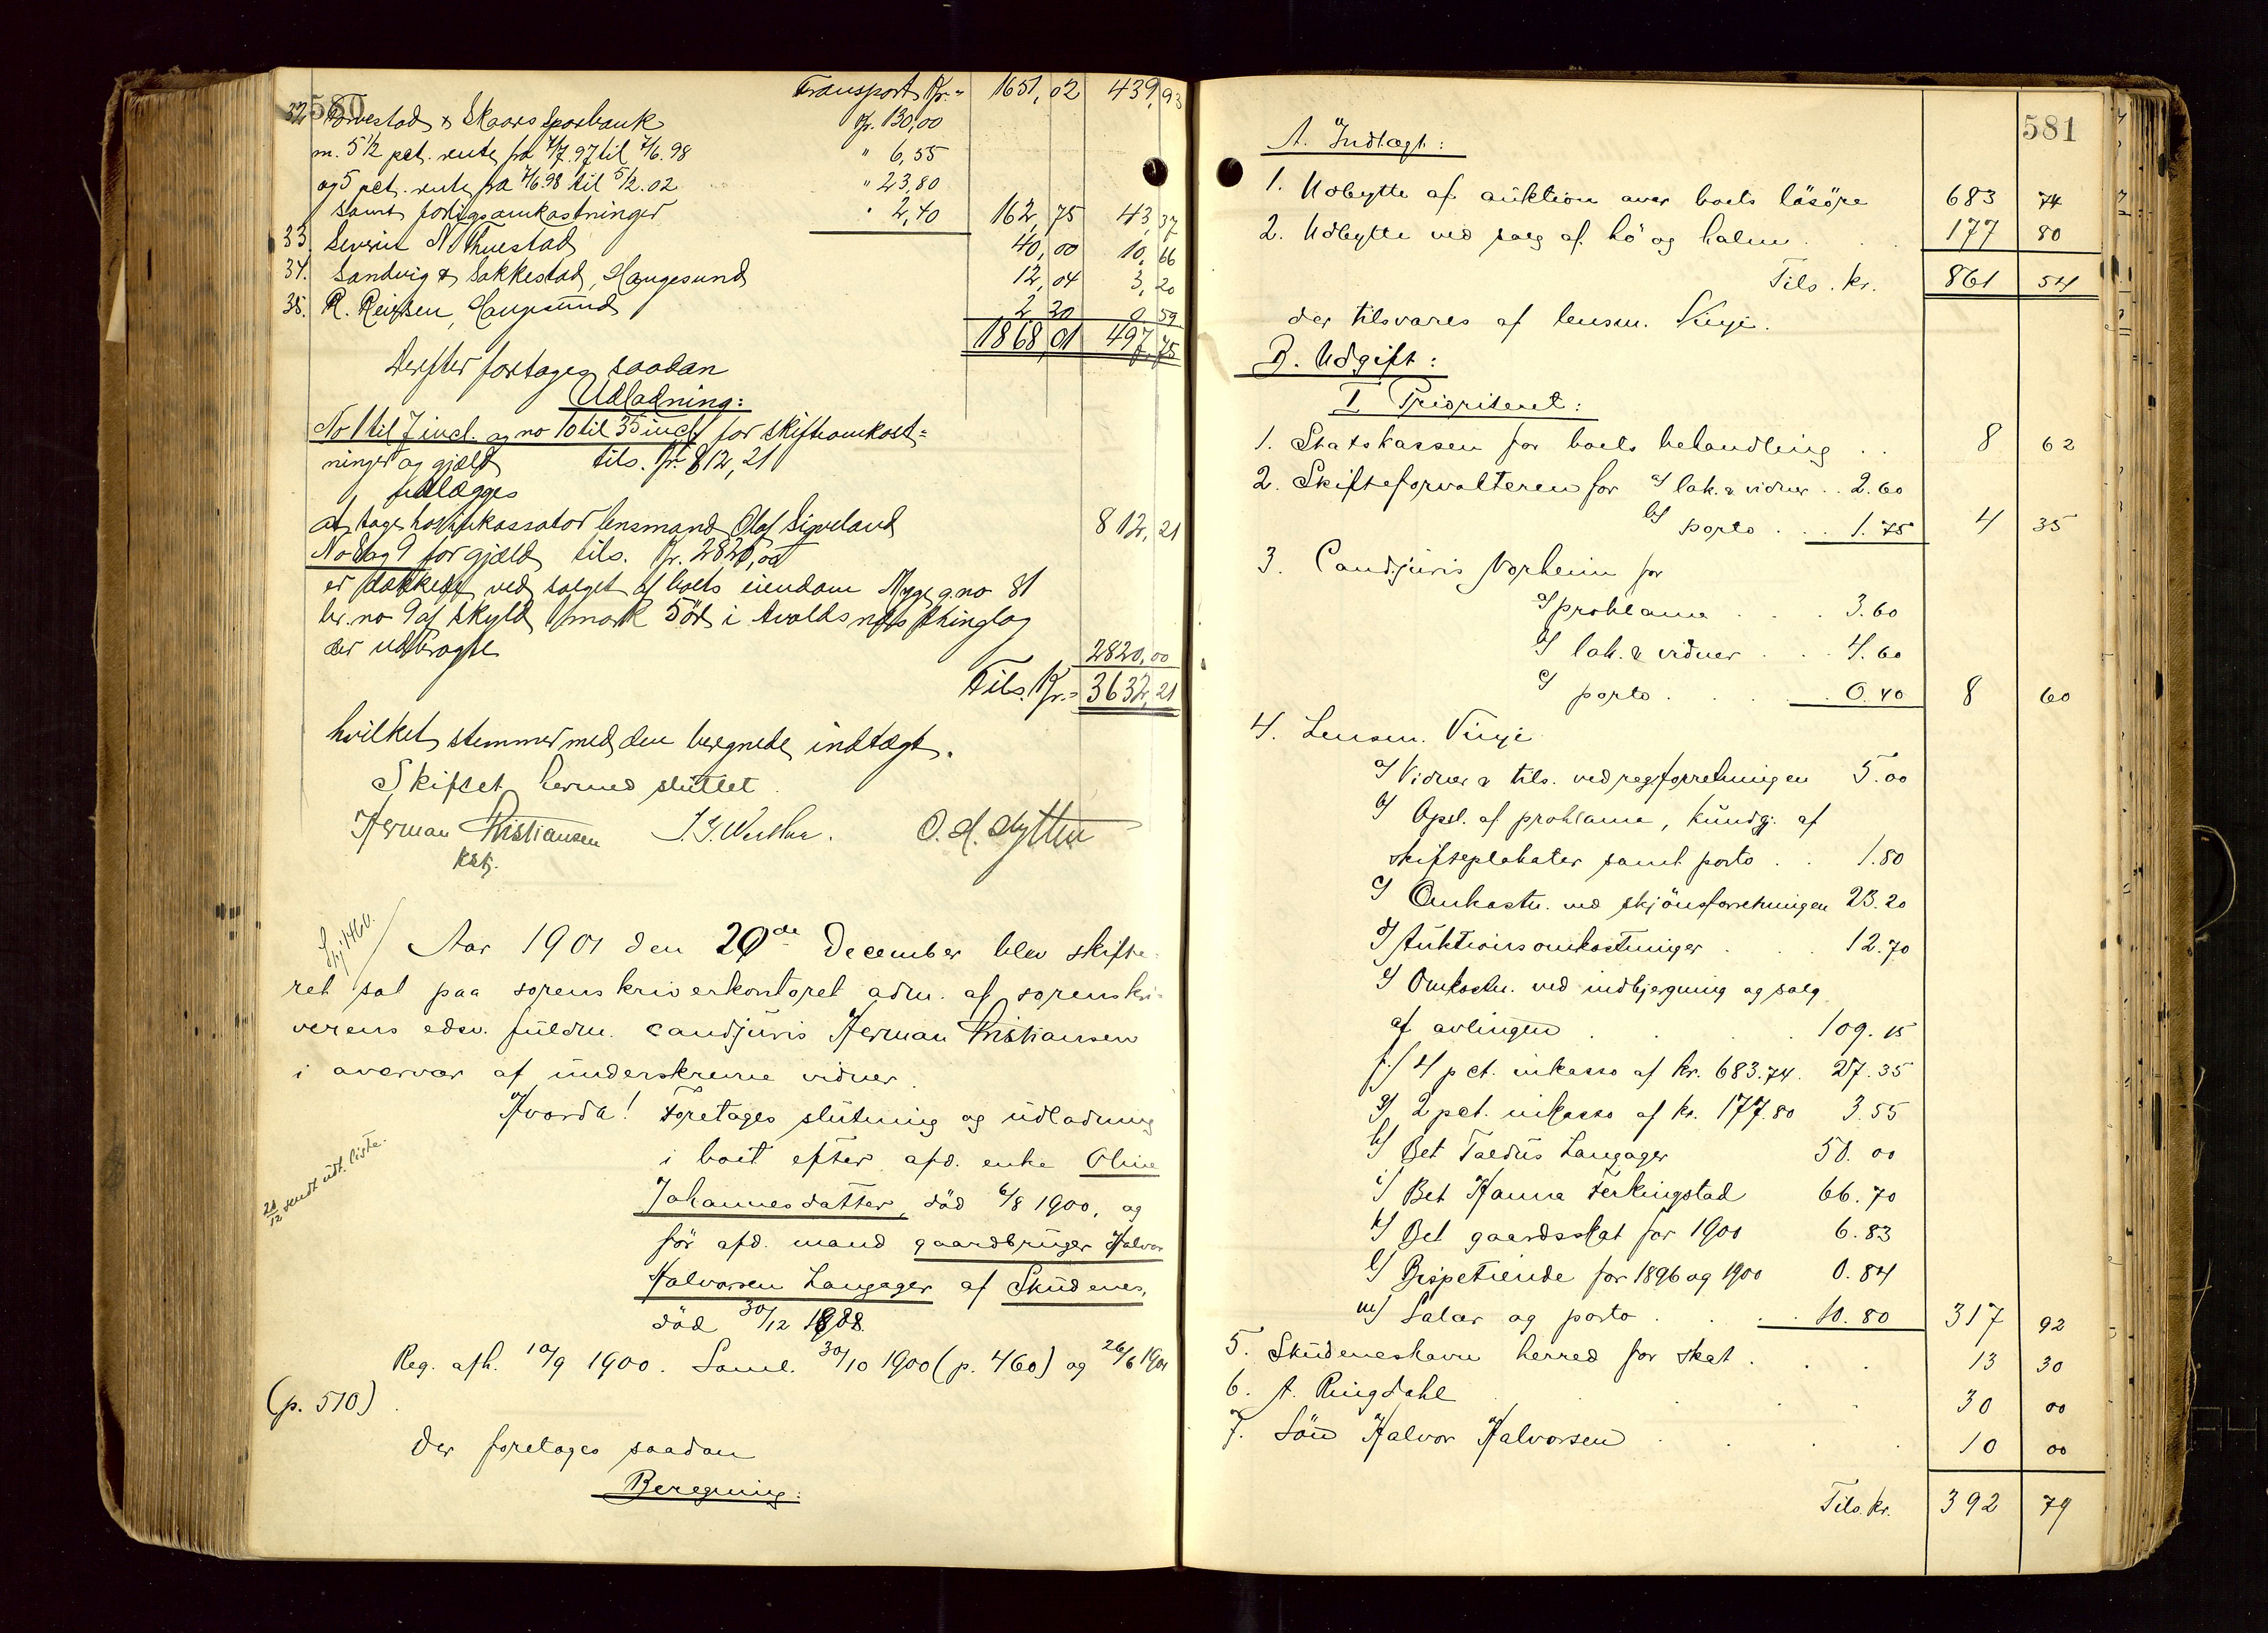 580
Transport Kr. " 1651,02 439,93
32. Torvestad & Skaars Sparbank Kr. 130,00
m. 5 1/2 pct. rente fra 7/7.97 til 7/6.98 " 6,55
og 5 pct. rente fra 7/6.98 til 5/2.02 " 23,80
samt forligsomkostninger " 2,40 162,75 43,37
33. Severin N. Thuestad 40,00 10,66
34. Sandvig & Sakkestad, Haugesund 12,04 3,20
35. R. Reiersen, Haugesund 2 20 0 59
1868,01 497,75
Derefter foretages saadan
Udladning:
No 1 til 7 incl. og no 10 til 35 incl. for skifteomkost=
ninger og gjæld tils. Kr. 812,21
udlægges
at tage hos inkassator lensmand Olaf Sigveland 812,21
No 8 og 9 for gjæld tils. Kr. 2820,00
er dækket ved salget af boets eiendom Myge g.no 81
br. no 9 af skyld 1 mark 5 öre i Avaldsnes thinglag
der udbragte 2820,00
Tils. Kr. 3632,21
hvilket stemmer med den beregnede indtægt.
Skiftet hermed sluttet.
Herman Kristiansen
kst.
O. H. Dytten
Aar 1901 den 20de December blev skifte-
ret sat paa sorenskriverkontoret adm. af sorenskri-
verens edsv. fuldm. cand juris Herman Kristiansen
i overvær af underskrevne vidner.
Hvorda! Foretages slutning og udlodning
i boet efter afd. enke Oline
Johannesdatter, död 6/8 1900, og
för afd. mand gaardbruger Halvor
Halvorsen Langager af Skudenes,
död 30/12 1888.
21/12 sendt udl. liste.
Reg. afh. 10/9 1900. Saml. 30/10 1900 (p. 460) og 26/6 1901
(p. 510).
Der foretages saadan
Beregning:
581
A. Indtægt:
1. Udbytte af auktion over boets lösöre 683 74
2. Udbytte ved salg af hö og halm . . 177 80
Tils. kr. 861 54
der tilsvares af lensm. Vinje.
B. Udgift:
I Prioriteret:
1. Statskassen for boets behandling . . 8 62
2. Skifteforvalteren for a/ lak. & vidner . . 2.60
b/ porto . . . 1.75 4 35
3. Cand. juris Norheim for
a/ proklama . . . 3.60
b/ lak. & vidner . . . 4.60
c/ porto . . . . 0.40 8 60
4. Lensm. Vinje
a/ Vidner & tils. ved reg.forretningen 5.00
b/ Opsl. af proklama, kundgj. af
skifteplakater samt porto . . 1.80
c/ Omkostn. ved skjönsforretningen 23.20
d/ Auktionsomkostninger . . . 12.70
e/ Omkostn. ved indbjergning og salg
af avlingen . . . 109.15
f./ 4 pct. inkasso af kr. 683.74. 27.35
g/ 2 pct. inkasso af kr. 177.80 3.55
h/ Bet Taedus Langager 50.00
i/ Bet Hanna Ferkingstad 66.70
k/ Bet gaardsskat for 1900 6.83
l/ Bispetiende for 1896 og 1900 0.84
m/ Salær og porto . . . . 10.80 317 92
5. Skudeneshavn herred for skat . . . 13 30
6. A. Ringdahl . . . 30 00
7. Sön Halvor Halvorsen . . . 10 00
Tils. kr. 392 79